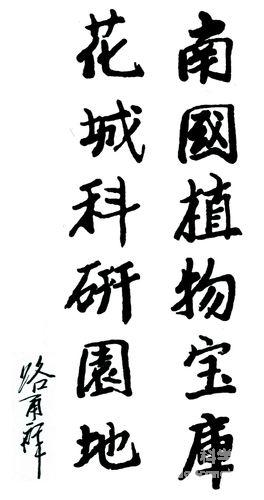 南國植物宝庫
花城科研園地
路甬祥